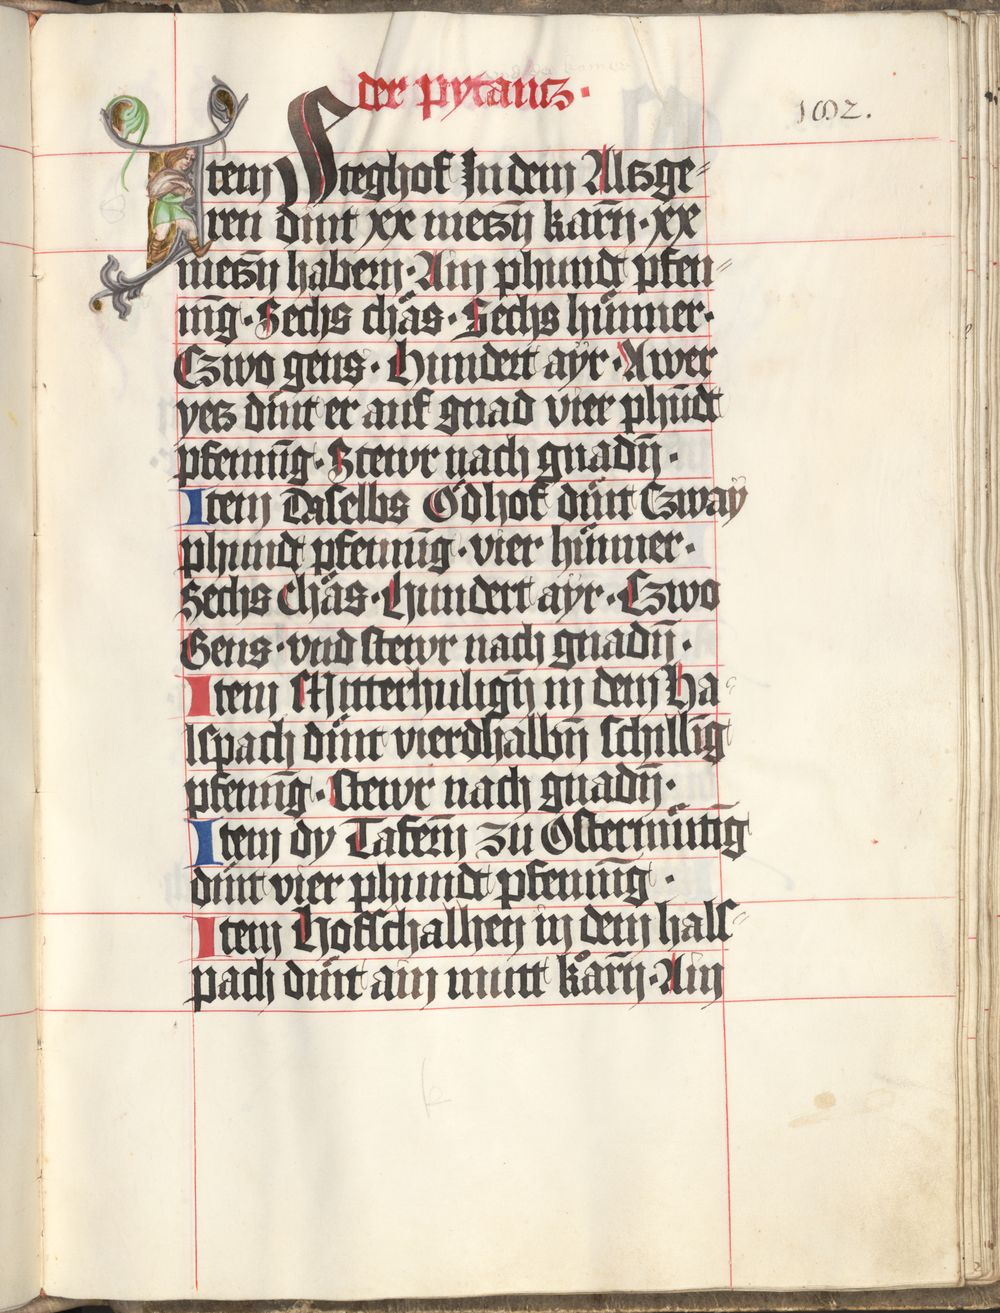 der pytantz·
102.
Item Steghof In dem Altzge-
ren dint xx metzn̄ karn̄· xx
metzn̄ habern· Ain phundt pfen-
nīg· Sechs chäs· Sechs hünner·
Czwo gens· Hundert ayr· Awer
yetz dint er auf gnad vier phūdt
pfennīg· Stewr nach gnadn̄·
Item Daselbs Ödhof dint Czway
phundt pfennīg· vier hünner·
Sechs Chäs· Hundert ayr· Czwo
Gens· vnd stewr nach gnadn̄·
Item Mitterhulign̄ in dem Ha-
lspach dint vierdhalbn̄ schillīg
pfennīg· Stewr nach gnadn̄·
Item dy Tafern̄ zu Ostermütīg
dint vier phundt pfennīg·
Item Hofschalhen in dem hals-
pach dint ain mutt karn̄· Ain